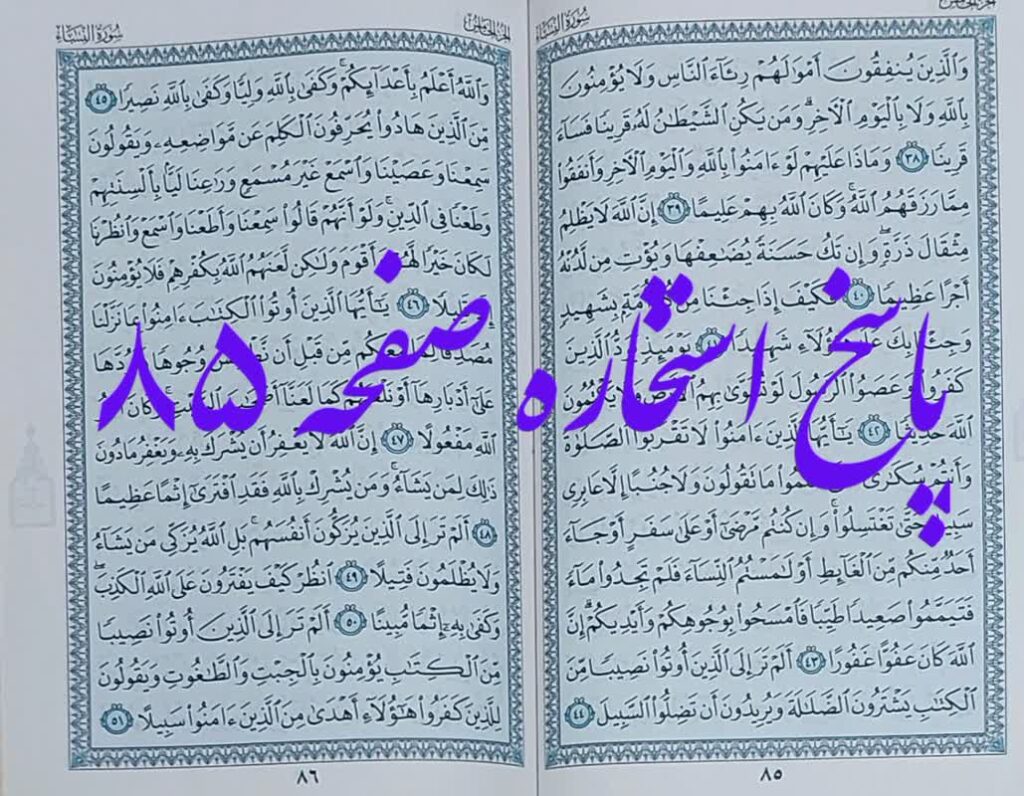 الجزء الخامس
سورة النساء
وَٱلَّذِينَ يُنفِقُونَ أَمْوَٰلَهُمْ رِئَآءَ ٱلنَّاسِ وَلَا يُؤْمِنُونَ
بِٱللَّهِ وَلَا بِٱلْيَوْمِ ٱلْـَٔاخِرِ ۗ وَمَن يَكُنِ ٱلشَّيْطَٰنُ لَهُۥ قَرِينًا فَسَآءَ
قَرِينًا ٣٨ وَمَاذَا عَلَيْهِمْ لَوْ ءَامَنُوا۟ بِٱللَّهِ وَٱلْيَوْمِ ٱلْـَٔاخِرِ وَأَنفَقُوا۟
مِمَّا رَزَقَهُمُ ٱللَّهُ ۚ وَكَانَ ٱللَّهُ بِهِمْ عَلِيمًا ٣٩ إِنَّ ٱللَّهَ لَا يَظْلِمُ
مِثْقَالَ ذَرَّةٍ ۖ وَإِن تَكُ حَسَنَةً يُضَٰعِفْهَا وَيُؤْتِ مِن لَّدُنْهُ
أَجْرًا عَظِيمًا ٤٠ فَكَيْفَ إِذَا جِئْنَا مِن كُلِّ أُمَّةٍۭ بِشَهِيدٍ
وَجِئْنَا بِكَ عَلَىٰ هَٰٓؤُلَآءِ شَهِيدًا ٤١ يَوْمَئِذٍ يَوَدُّ ٱلَّذِينَ
كَفَرُوا۟ وَعَصَوُا۟ ٱلرَّسُولَ لَوْ تُسَوَّىٰ بِهِمُ ٱلْأَرْضُ وَلَا يَكْتُمُونَ
ٱللَّهَ حَدِيثًا ٤٢ يَٰٓأَيُّهَا ٱلَّذِينَ ءَامَنُوا۟ لَا تَقْرَبُوا۟ ٱلصَّلَوٰةَ
وَأَنتُمْ سُكَٰرَىٰ حَتَّىٰ تَعْلَمُوا۟ مَا تَقُولُونَ وَلَا جُنُبًا إِلَّا عَابِرِى
سَبِيلٍ حَتَّىٰ تَغْتَسِلُوا۟ ۚ وَإِن كُنتُم مَّرْضَىٰٓ أَوْ عَلَىٰ سَفَرٍ أَوْ جَآءَ
أَحَدٌ مِّنكُم مِّنَ ٱلْغَآئِطِ أَوْ لَٰمَسْتُمُ ٱلنِّسَآءَ فَلَمْ تَجِدُوا۟ مَآءً
فَتَيَمَّمُوا۟ صَعِيدًا طَيِّبًا فَٱمْسَحُوا۟ بِوُجُوهِكُمْ وَأَيْدِيكُمْ ۗ إِنَّ
ٱللَّهَ كَانَ عَفُوًّا غَفُورًا ٤٣ أَلَمْ تَرَ إِلَى ٱلَّذِينَ أُوتُوا۟ نَصِيبًا مِّنَ
ٱلْكِتَٰبِ يَشْتَرُونَ ٱلضَّلَٰلَةَ وَيُرِيدُونَ أَن تَضِلُّوا۟ ٱلسَّبِيلَ ٤٤
٨٥
الجزء الخامس
سورة النساء
وَٱللَّهُ أَعْلَمُ بِأَعْدَآئِكُمْ ۚ وَكَفَىٰ بِٱللَّهِ وَلِيًّا وَكَفَىٰ بِٱللَّهِ نَصِيرًا ٤٥
مِّنَ ٱلَّذِينَ هَادُوا۟ يُحَرِّفُونَ ٱلْكَلِمَ عَن مَّوَاضِعِهِۦ وَيَقُولُونَ
سَمِعْنَا وَعَصَيْنَا وَٱسْمَعْ غَيْرَ مُسْمَعٍ وَرَٰعِنَا لَيًّۢا بِأَلْسِنَتِهِمْ
وَطَعْنًا فِى ٱلدِّينِ ۚ وَلَوْ أَنَّهُمْ قَالُوا۟ سَمِعْنَا وَأَطَعْنَا وَٱسْمَعْ وَٱنظُرْنَا
لَكَانَ خَيْرًا لَّهُمْ وَأَقْوَمَ وَلَٰكِن لَّعَنَهُمُ ٱللَّهُ بِكُفْرِهِمْ فَلَا يُؤْمِنُونَ
إِلَّا قَلِيلًا ٤٦ يَٰٓأَيُّهَا ٱلَّذِينَ أُوتُوا۟ ٱلْكِتَٰبَ ءَامِنُوا۟ بِمَا نَزَّلْنَا
مُصَدِّقًا لِّمَا مَعَكُم مِّن قَبْلِ أَن نَّطْمِسَ وُجُوهًا فَنَرُدَّهَا
عَلَىٰٓ أَدْبَارِهَآ أَوْ نَلْعَنَهُمْ كَمَا لَعَنَّآ أَصْحَٰبَ ٱلسَّبْتِ ۚ وَكَانَ أَمْرُ
ٱللَّهِ مَفْعُولًا ٤٧ إِنَّ ٱللَّهَ لَا يَغْفِرُ أَن يُشْرَكَ بِهِۦ وَيَغْفِرُ مَا دُونَ
ذَٰلِكَ لِمَن يَشَآءُ ۚ وَمَن يُشْرِكْ بِٱللَّهِ فَقَدِ ٱفْتَرَىٰٓ إِثْمًا عَظِيمًا
٤٨ أَلَمْ تَرَ إِلَى ٱلَّذِينَ يُزَكُّونَ أَنفُسَهُم ۚ بَلِ ٱللَّهُ يُزَكِّى مَن يَشَآءُ
وَلَا يُظْلَمُونَ فَتِيلًا ٤٩ ٱنظُرْ كَيْفَ يَفْتَرُونَ عَلَى ٱللَّهِ ٱلْكَذِبَ ۖ
وَكَفَىٰ بِهِۦٓ إِثْمًا مُّبِينًا ٥٠ أَلَمْ تَرَ إِلَى ٱلَّذِينَ أُوتُوا۟ نَصِيبًا
مِّنَ ٱلْكِتَٰبِ يُؤْمِنُونَ بِٱلْجِبْتِ وَٱلطَّٰغُوتِ وَيَقُولُونَ
لِلَّذِينَ كَفَرُوا۟ هَٰٓؤُلَآءِ أَهْدَىٰ مِنَ ٱلَّذِينَ ءَامَنُوا۟ سَبِيلًا ٥١
٨٦
پاسخ استخاره صفحه ۸۵